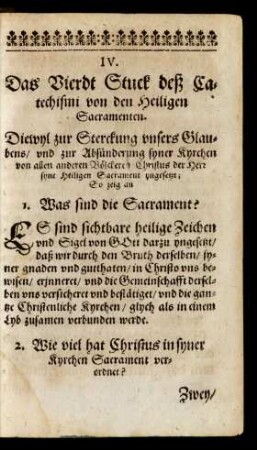 IV.
Das Vierdt Stuck deß Ca-
techismi von den Heiligen
Sacramenten.
Diewyl zur Sterckung vnsers Glau-
bens/ vnd zur Absünderung syner Kyrchen
von allen anderen Völckeren Christus der Herr
syne Heiligen Sacrament yngesetzt;
So zeig an
1. Was sind die Sacrament?
ES sind sichtbare heilige Zeichen
vnd Sigel von GOtt darzu yngesetzt/
daß wir durch den Bruch derselben/ sy-
ner gnaden vnd gutthaten/ in Christo vns be-
wisen/ erjnneret/ vnd die Gemeinschafft dersel-
ben vns versicheret vnd bestätiget/ vnd die gan-
tze Christenliche Kyrchen/ glych als in einem
Lyb zusamen verbunden werde.
2. Wie viel hat Christus in syner
Kyrchen Sacrament ver-
ordnet?
Zwey/